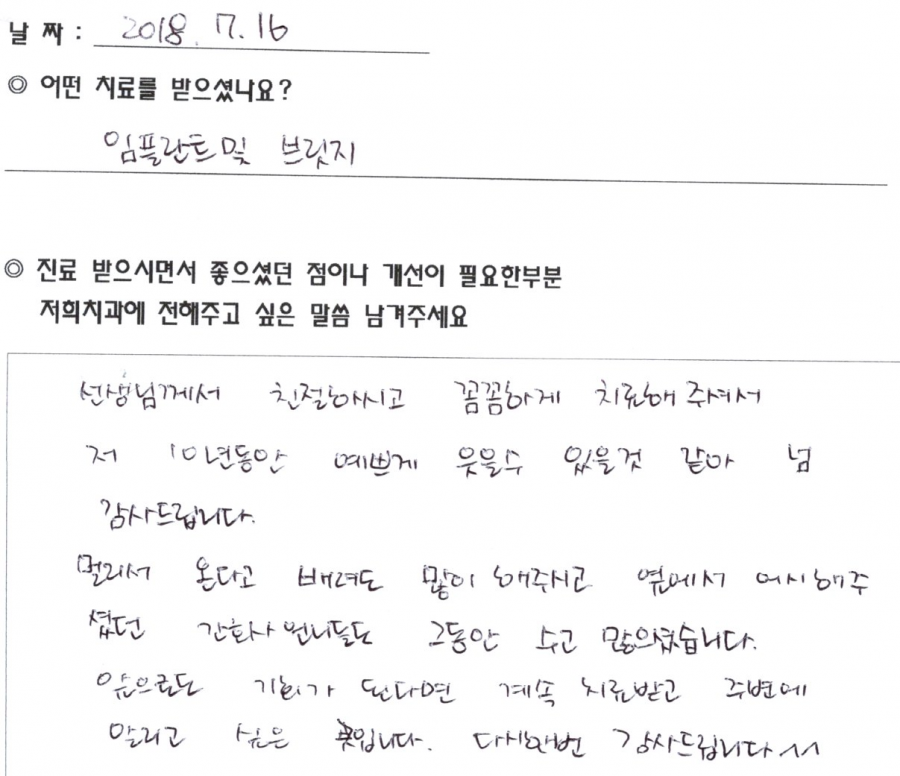 날 짜 : 2018. 7. 16
◎ 어떤 치료를 받으셨나요?
임플란트 및 브릿지
◎ 진료 받으시면서 좋으셨던 점이나 개선이 필요한부분
저희치과에 전해주고 싶은 말씀 남겨주세요
선생님께서 친절하시고 꼼꼼하게 치료해 주셔서
저 10년동안 예쁘게 웃을수 있을것 같아 넘
감사드립니다.
멀리서 온다고 배려도 많이 해주시고 옆에서 어시해주
셨던 간호사 언니들도 그동안 수고 많으셨습니다.
앞으로도 기회가 된다면 계속 치료받고 주변에
알리고 싶은 곳입니다. 다시한번 감사드립니다^^